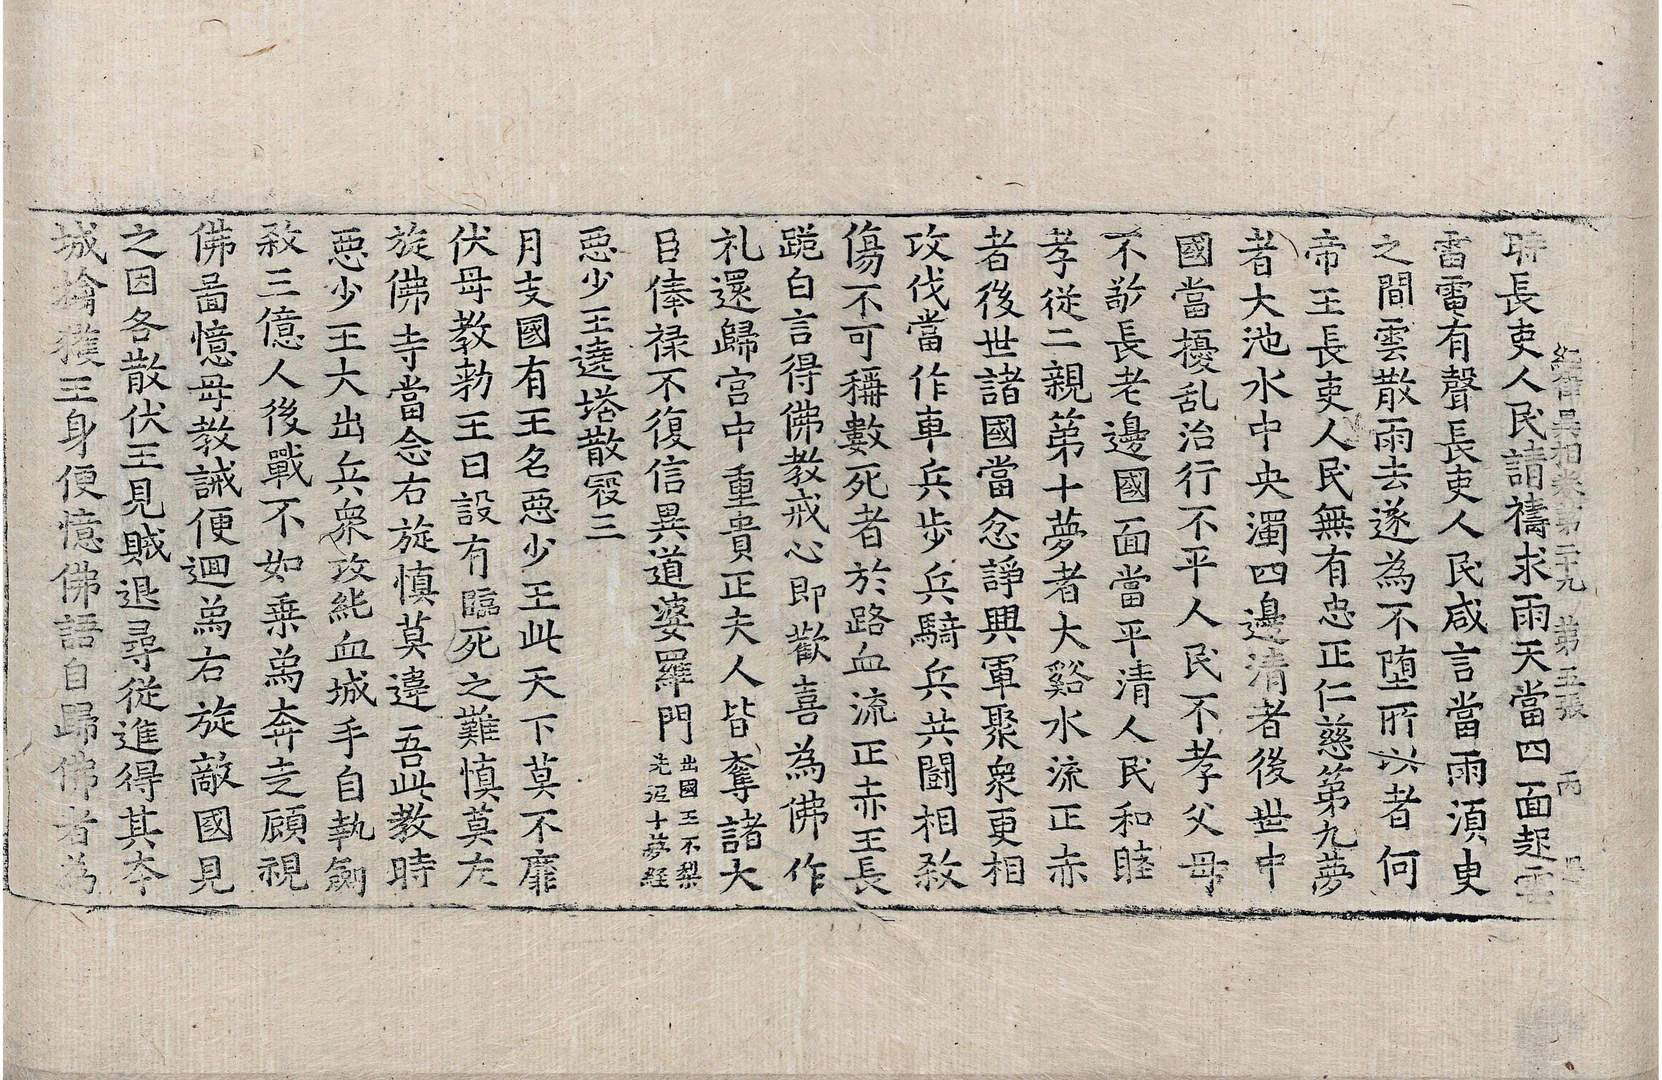 經律異相卷第二十九 第五張 丙
時長吏人民請禱求雨天當四面起雲
雷電有聲長吏人民咸言當雨湏臾
之間雲散雨去遂為不墮所以者何
帝王長吏人民無有忠正仁慈第九夢
者大池水中央濁四邊清者後世中
國當擾乱治行不平人民不孝父母
不敬長老邊國面當平清人民和睦
孝從二親第十夢者大谿水流正赤
者後世諸國當忿諍興軍聚衆更相
攻伐當作車兵步兵騎兵共鬪相煞
傷不可稱數死者於路血流正赤王長
跪白言得佛教戒心即歡喜為佛作
礼還歸宮中重貴正夫人皆奪諸大
臣俸禄不復信異道婆羅門出國王不梨
先泥十夢経
惡少王遶塔散冦三
月支國有王名惡少王此天下莫不靡
伏母教勑王曰設有臨死之難慎莫左
旋佛寺當念右旋慎莫違吾此教時
惡少王大出兵衆攻純血城手自執劍
煞三億人後戰不如乗為奔走顧視
佛啚憶母教誡便迴為右旋敵國見
之因各散伏王見賊退尋從進得其夲
城擒獲王身便憶佛語自歸佛者為